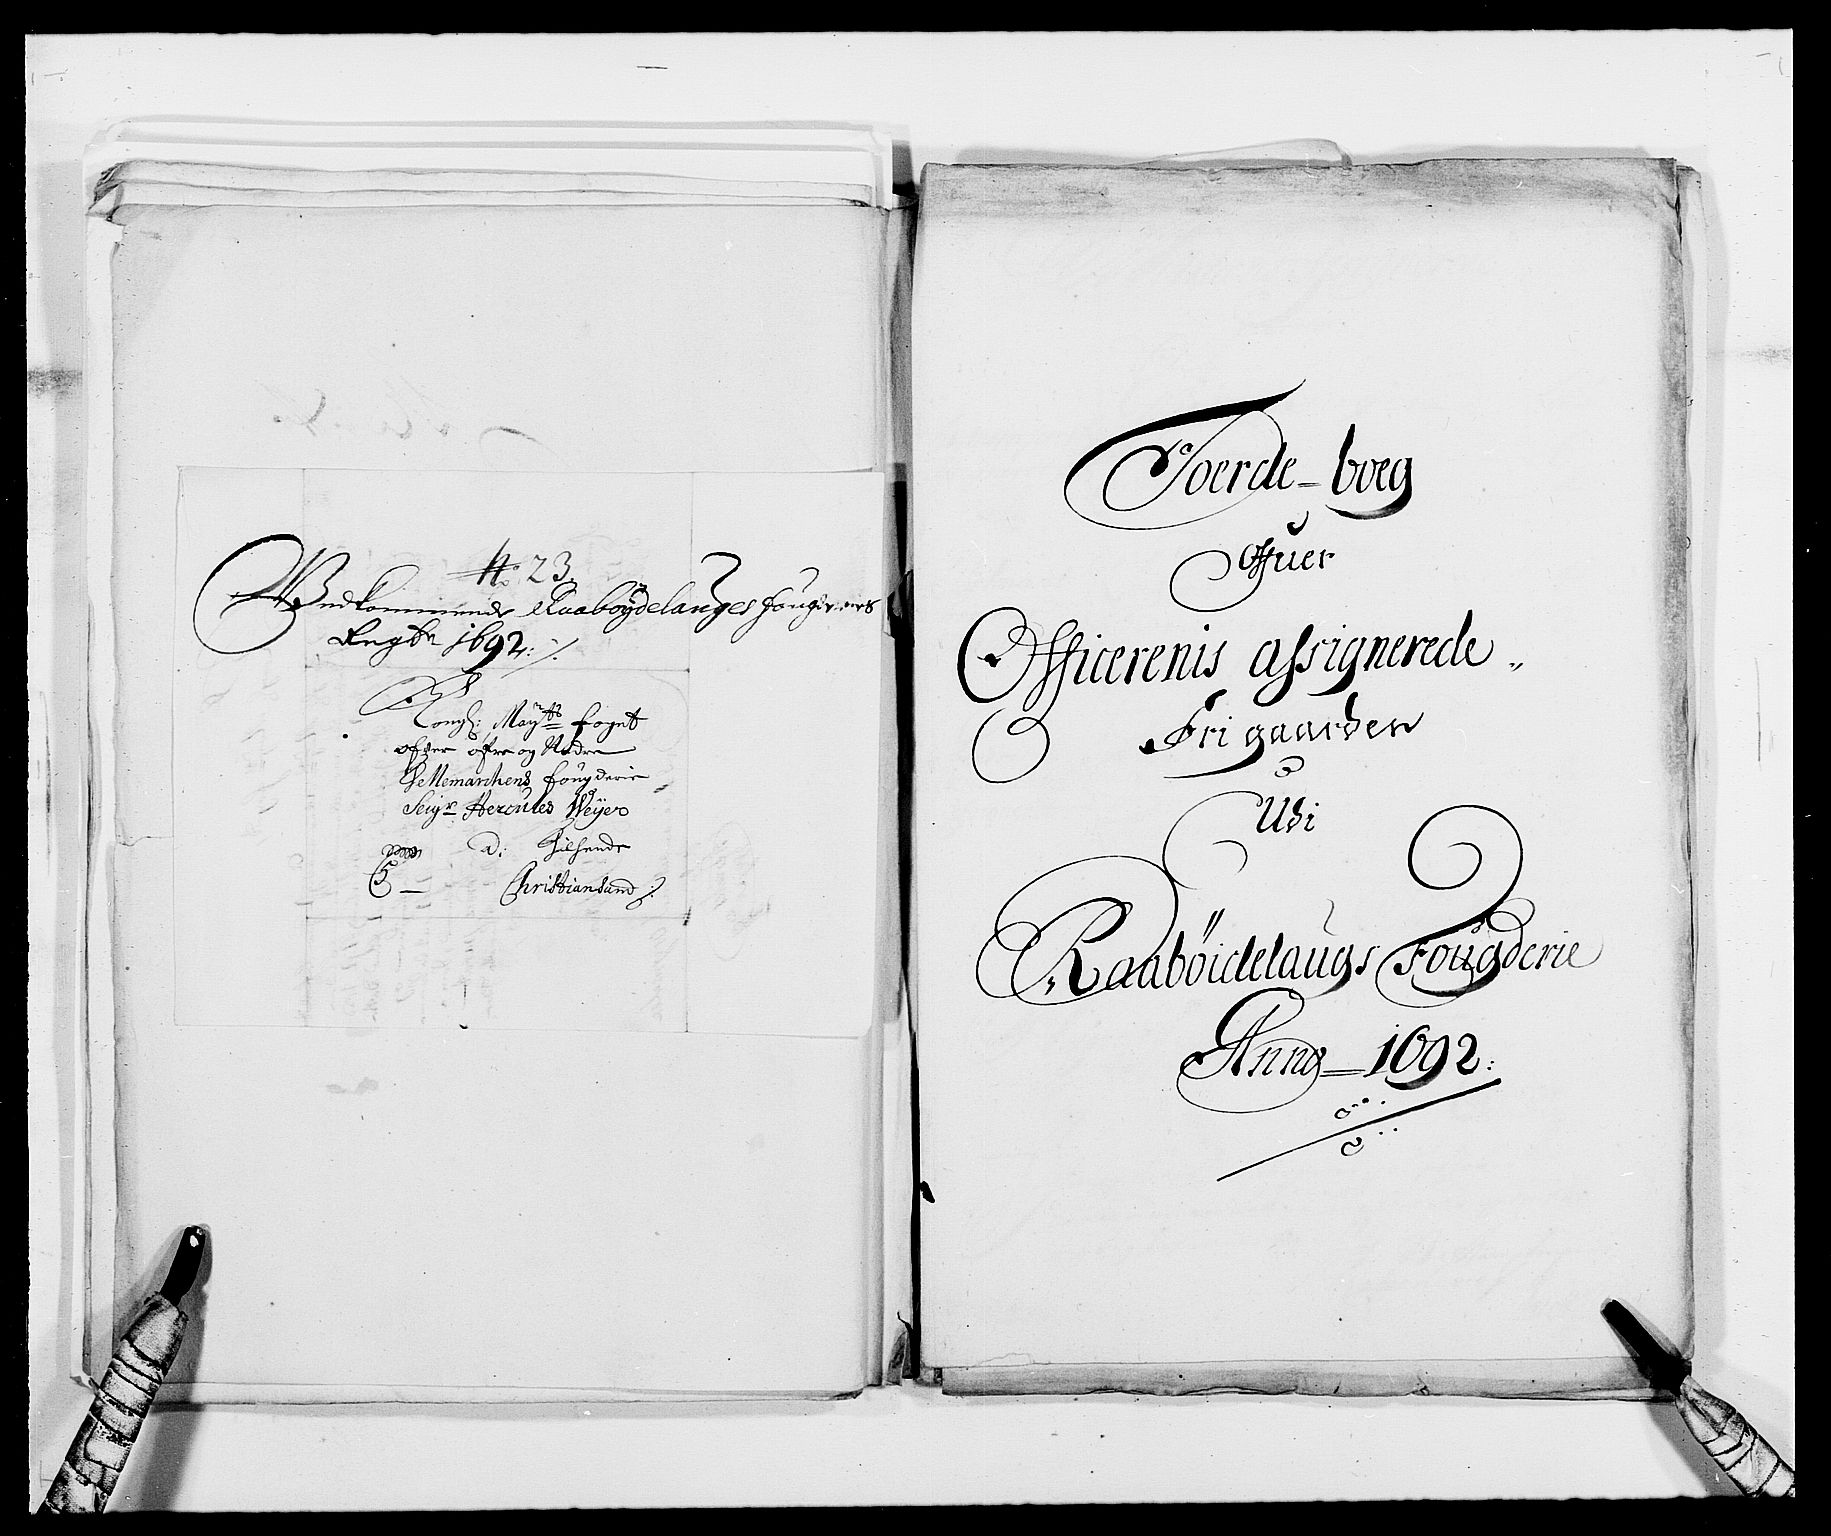 No 23.
Vedkommende Raaboÿdelauges fougderies
Regsk 1692:/.
Kongl: Maÿtts foget
ofver øfre og Nedre
Tellemarchens fougderie
Seigr Hercules Weÿer
A: Hilsende
Christiansand /:
Joerde-boeg
Ofuer
Officerenis assignerede
Fri gaarder
Udi
Raaböidelaugs Fougderie
Anno 1692: